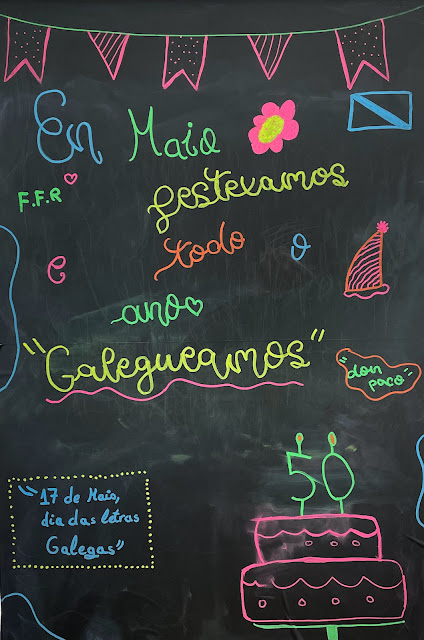 En Maio
F.F.R
festexamos
e todo o
ano
"Galegueamos"
"don
paco"
50
"17 de Maio,
dia das letras
Galegas"